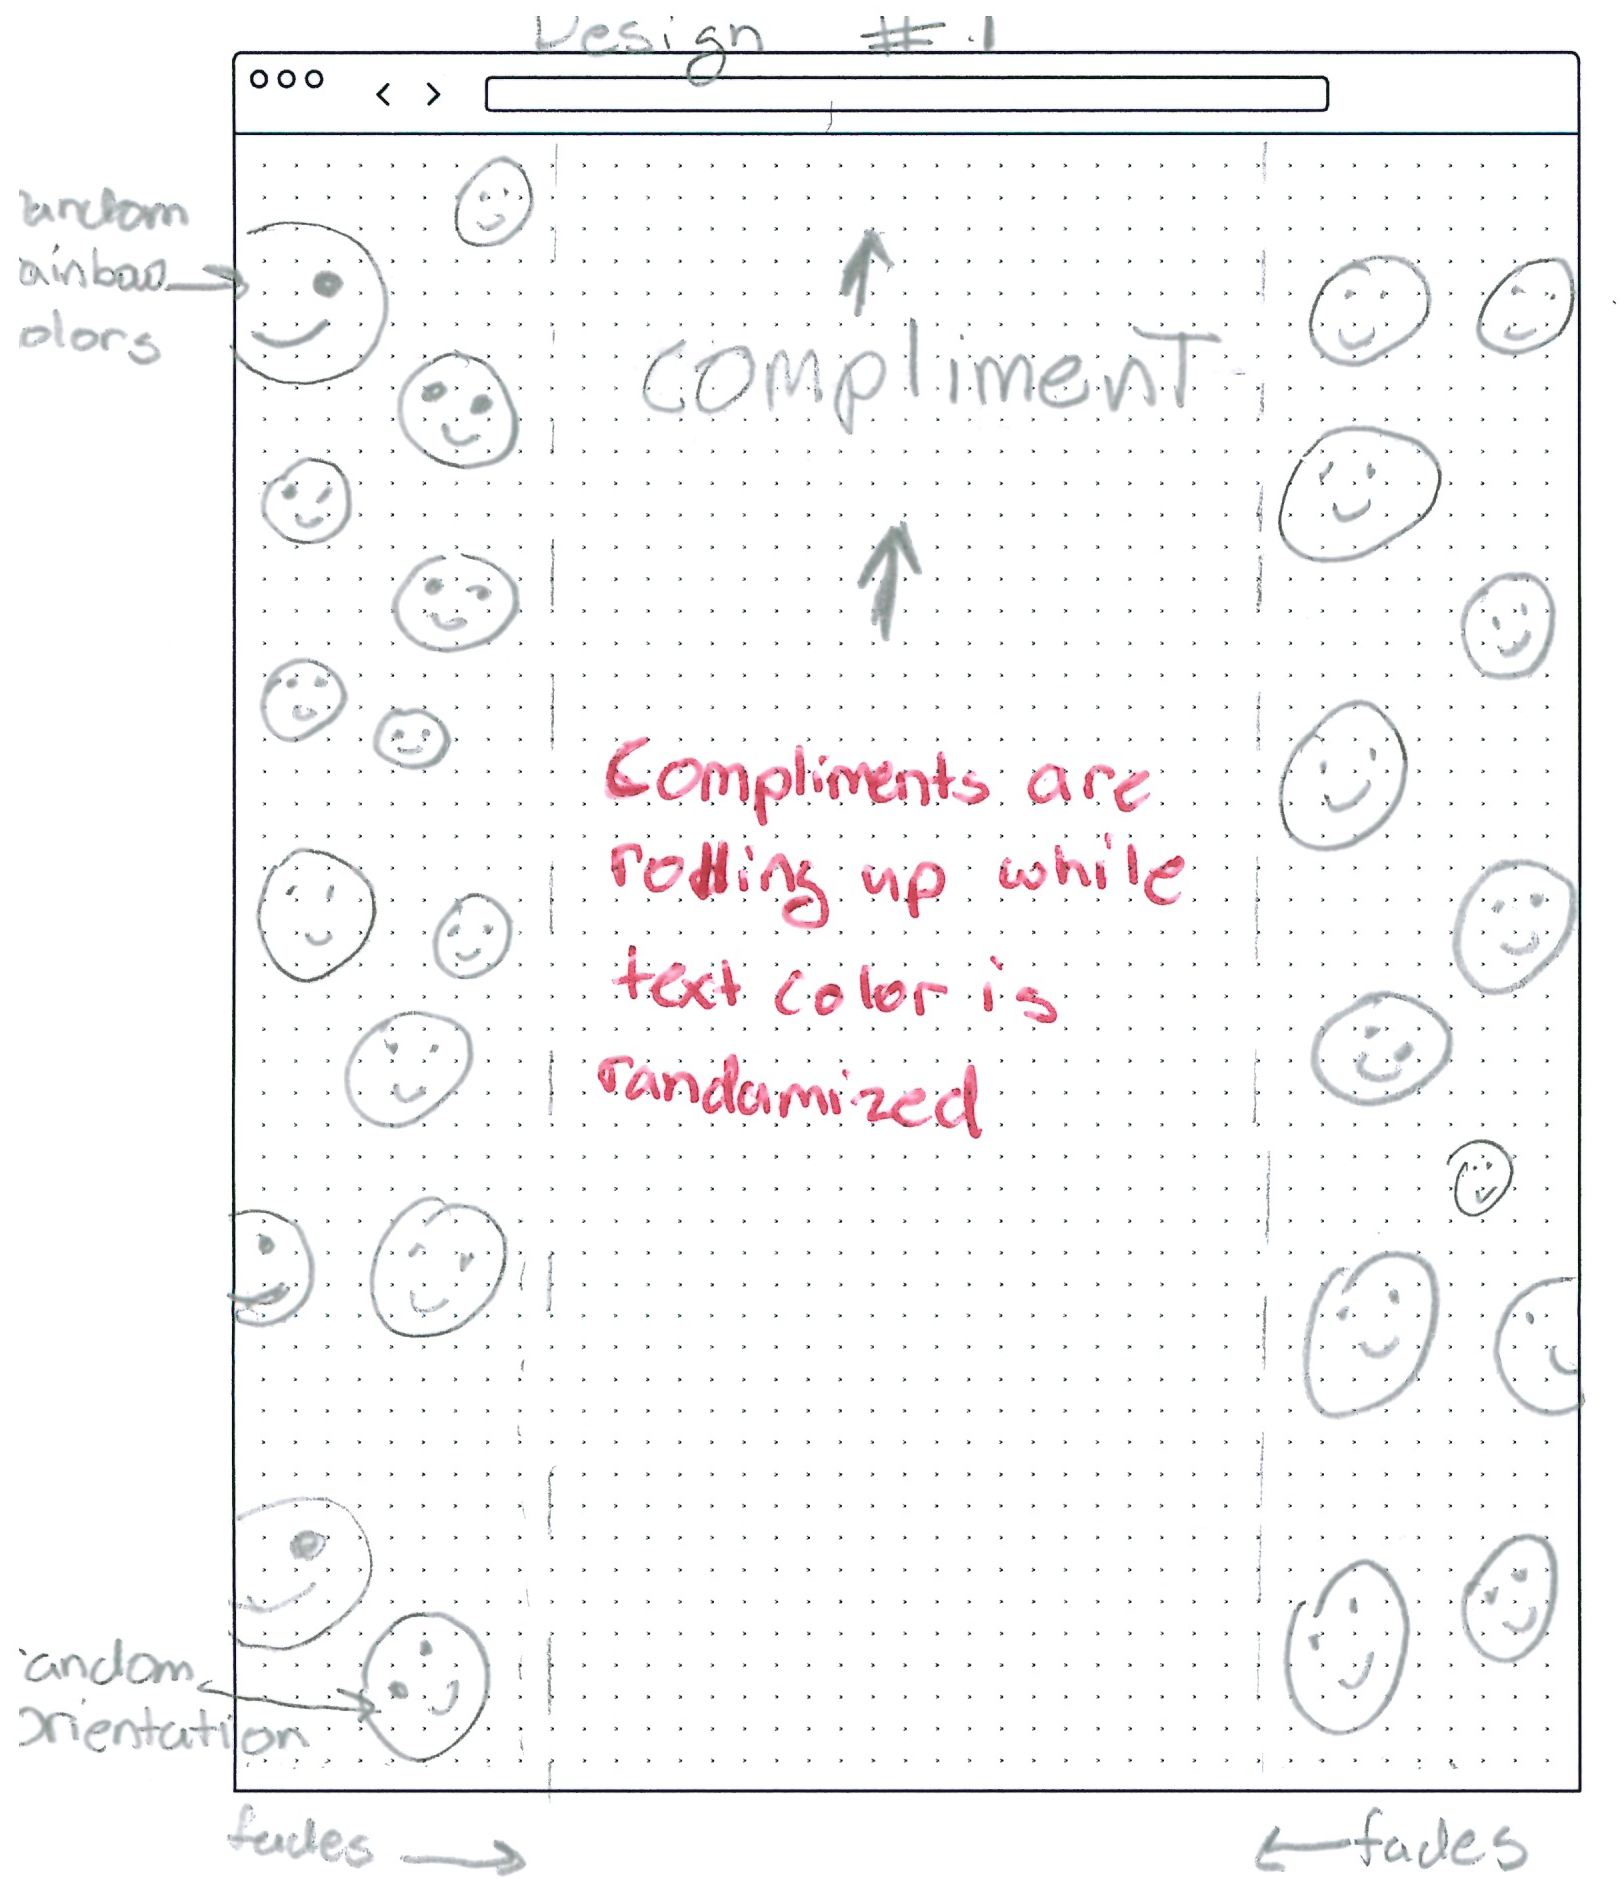 Design #.1
andom
ainbow
olors
compliment
Compliments are
rolling up while
text color is
randamized
andom
orientation
fades
fades